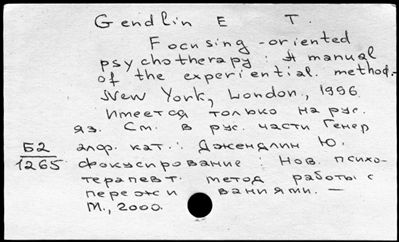 Gendlin E T.
Focusing-oriented
psychotherapy: A manual
of the experiential. method.-
New York, London., 1996
Имеется только на рус.
яз. См. в рус. части Генер
Б2 алф. кат.: Джендлин Ю.
1265 Фокусирование: Нов. психо-
терапевт. метод работы с
пережи ваниями. —
М., 2000.